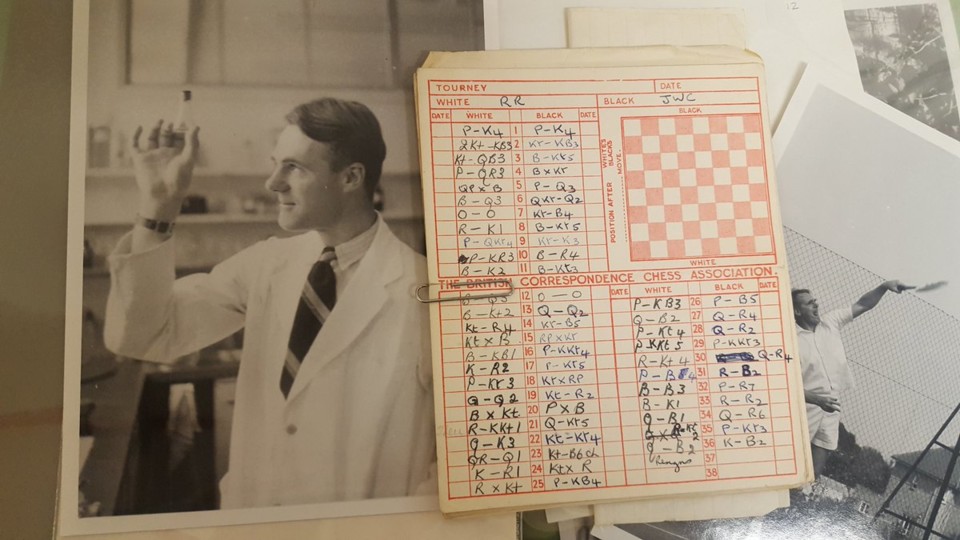 12
TOURNEY DATE
WHITE RR BLACK JWC
DATE WHITE BLACK DATE
BLACK
P-K4 1 P-K4
Kt-KB3 2 Kt-KB3
Kt-QB3 3 B-Kt5
P-QR3 4 BxKt
QPxB 5 P-Q3
B-Q3 6 QKt-Q2
O-O 7 Kt-B4
R-K1 8 B-Kt5
P-QKt4 9 Kt-K3
P-KR3 10 B-R4
B-K2 11 B-Kt3
POSITION AFTER WHITE'S BLACK'S MOVE.
WHITE
THE BRITISH CORRESPONDENCE CHESS ASSOCIATION.
DATE WHITE BLACK DATE
12 O-O
B-Kt2 13 Q-Q2
Kt-R4 14 Kt-B5
KtxB 15 RPxKt
B-KB1 16 P-KKt4
K-R2 17 P-Kt5
P-Kt3 18 KtxRP
Q-Q2 19 Kt-R2
BxKt 20 PxB
R-KKt1 21 Q-Kt5
Q-K3 22 Kt-Kt4
QR-Q1 23 Kt-B6ch
K-R1 24 KtxR
RxKt 25 P-KB4
P-KB3 26 P-B5
Q-B2 27 Q-R4
P-Kt4 28 Q-R2
P-KKt5 29 P-KKt3
R-Kt4 30 Q-R4
P-B4 31 R-B2
B-B3 32 P-R7
B-K1 33 R-R2
Q-B1 34 Q-R6
35 P-Kt3
Q-B2 36 K-B2
Resigns 37
38